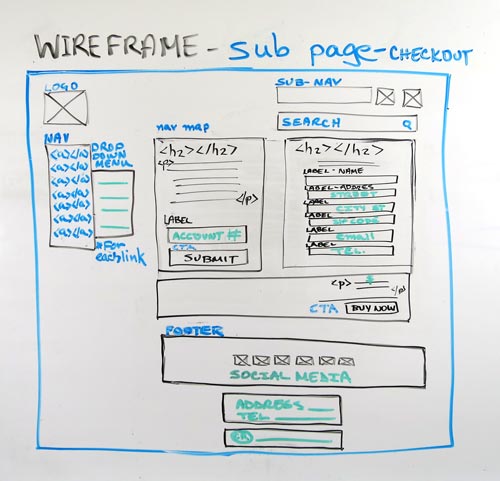 WIREFRAME - sub page - CHECKOUT
LOGO
SUB-NAV
SEARCH
NAV
<a></a>
<a></a>
<a></a>
<a></a>
<a></a>
<a></a>
<a></a>
DROP
DOWN
MENU
*For
each link
nav map
<h2></h2>
<p>
</p>
LABEL
ACCOUNT #
CTA
SUBMIT
<h2></h2>
LABEL - NAME
LABEL-ADDRES
STREET
LABEL
CITY ST
LABEL
ZIP CODE
LABEL
EMAIL
LABEL
TEL.
<p>
</p>
CTA
BUY NOW
FOOTER
SOCIAL MEDIA
ADDRESS
TEL